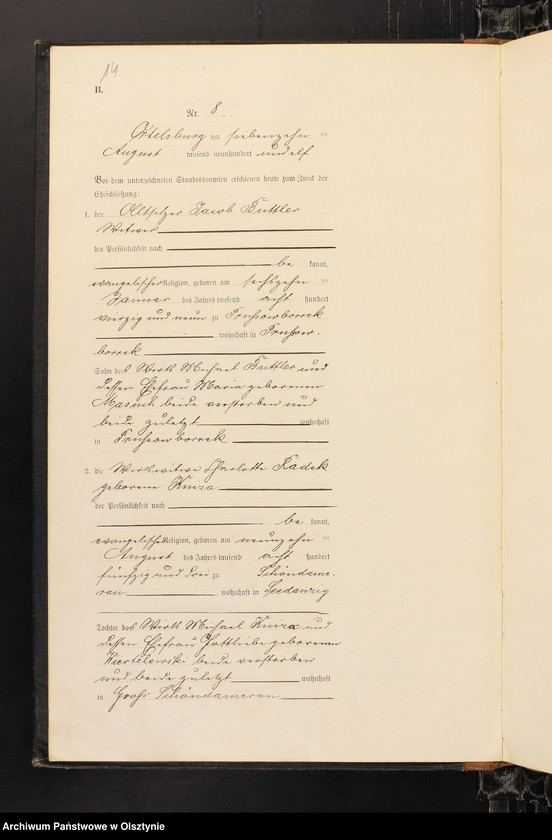 14
B.
Nr. 8
Ortelsburg am siebenzehn ten
August tausend neunhundert und elf
Vor dem unterzeichneten Standesbeamten erschienen heute zum Zweck der
Eheschließung:
1. der Altsitzer Jacob Buttler
Witwer
der Persönlichkeit nach
be kannt,
evangelischer Religion, geboren am sechszehn ten
Januar des Jahres tausend acht hundert
vierzig und neun zu
, wohnhaft in
Sohn des Wirth Michael Buttler und
dessen Ehefrau Maria geborenen
beide verstorben und
beide zuletzt wohnhaft
in
2. die Wirtswitwe Charlotte Radek
geborene Kniza
der Persönlichkeit nach
be kannt,
evangelischer Religion, geboren am neunzehn ten
August des Jahres tausend acht hundert
fünfzig und drei zu Schöndame-
rau , wohnhaft in Seedanzig
Tochter des Wirth Michael Kniza und
dessen Ehefrau Gottliebe geborenen
beide verstorben
und beide zuletzt wohnhaft
in Groß Schöndamerau
Archiwum Państwowe w Olsztynie